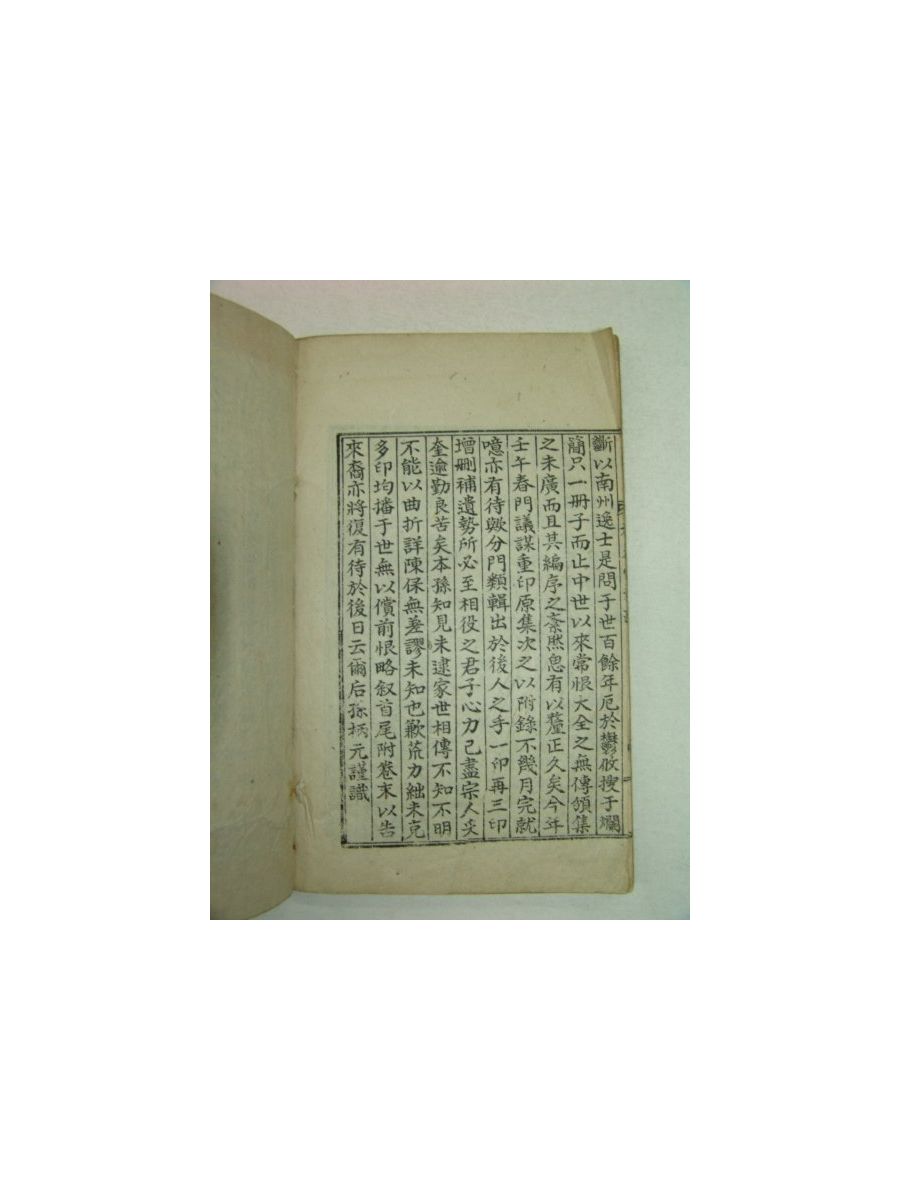 斷以南州逸士是問于世百餘年厄於鬱攸搜于爛
簡只一冊子而止中世以來常恨大全之無傳頒集
之未廣而且其編序之紊然思有以釐正久矣今年
壬午春門議謀重印原集次之以附錄不幾月完就
噫亦有待歟分門類輯出於後人之手一印再三印
增刪補遺勢所必至相役之君子心力己盡宗人奎
奎逾勤良苦矣本孫知見未逮家世相傳不知不明
不能以曲折詳陳保無差謬未知也歉荒力絀未克
多印均播于世無以償前恨略叙首尾附卷末以告
來裔亦將復有待於後日云爾后孫柄元謹識